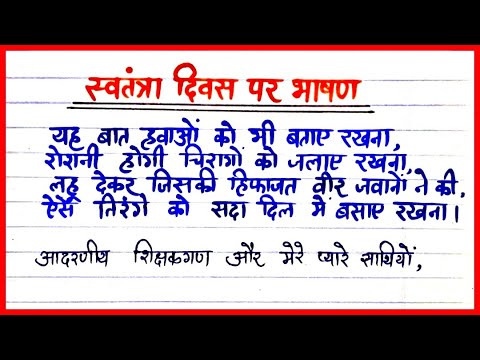 स्वतंत्रा दिवस पर भाषण
यह बात हवाओं को भी बताए रखना,
रोशनी होगी चिरागों को जलाए रखना,
लहू देकर जिसकी हिफाजत वीर जवानों ने की,
ऐसे तिरंगे को सदा दिल में बसाए रखना।
आदरणीय शिक्षकगण और मेरे प्यारे साथियों,